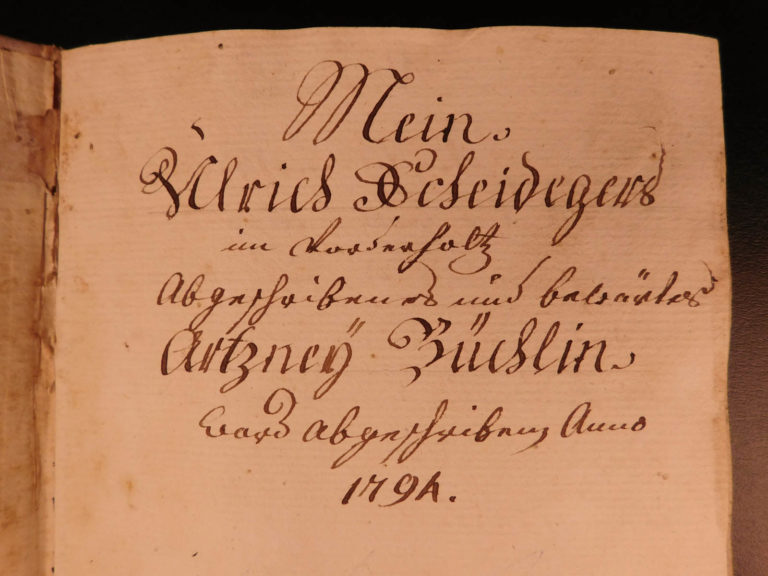 Mein.
Ulrich Scheidegers
im Vorderholtz
Abgeschribenes und bewärtes
Artzney Büchlin.
Ward Abgeschriben, Anno
1794.